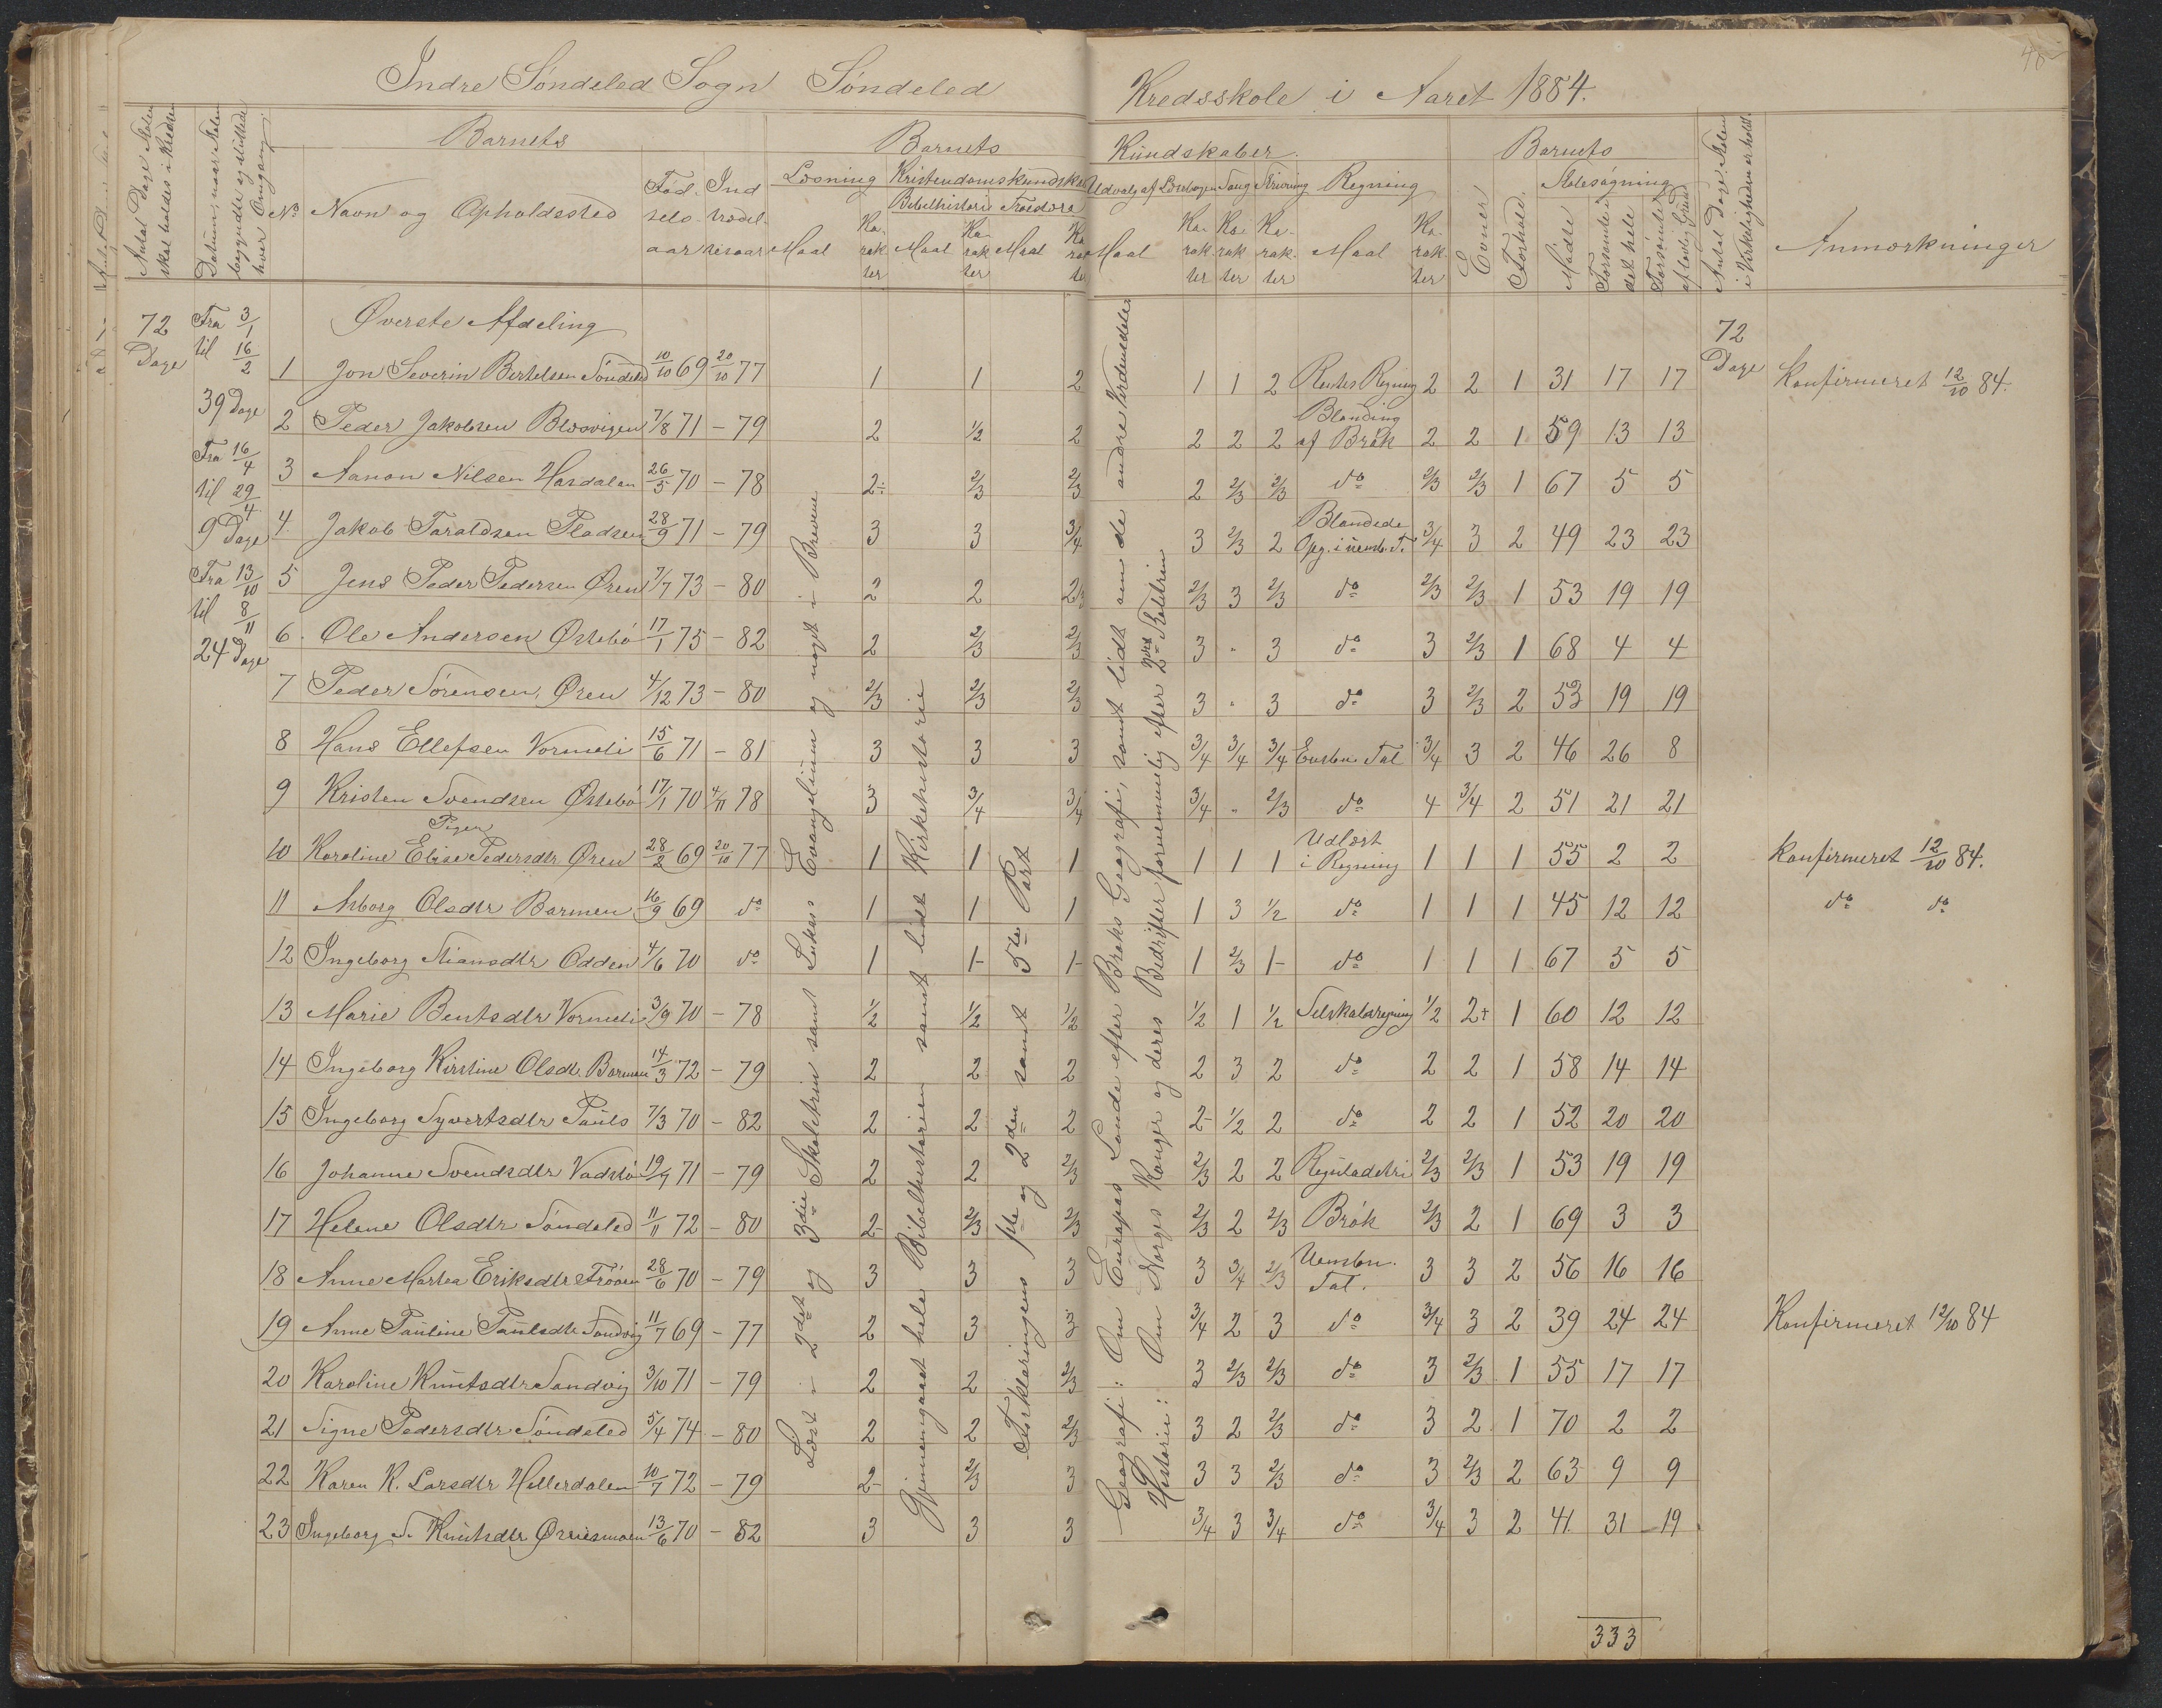 Indre Søndeled Sogn Søndeled Kredsskole i Aaret 1884.
Antal Dage Skolen skal holdes i Kredsen
Datum, naar Skolen begyndte og sluttede hver Omgang
No
Barnets
Navn og Opholdssted
Fødselsaar
Indtrædelsesaar
Barnets Kundskaber.
Læsning Kristendomskundskab
Bibelhistorie Troeslære
Maal Karakter Maal Karakter Maal Karakter
Udvalg af Læsebogen Sang Skrivning Regning
Maal Karakter Karakter Karakter Maal Karakter
Barnets
Evner
Forhold
Skolesøgning
Mødte
Forsømte i det hele
Forsømte af lovlig Grund
Antal Dage Skolen i Virkeligheden er holdt
Anmærkninger
72 Dage
Fra 3/1 til 16/2
39 Dage
Fra 16/4 til 29/4
9 Dage
Fra 13/10 til 8/11
24 Dage
72 Dage
Øverste Afdeling
1 Jon Severin Bertelsen Søndeled 10/10 69 20/10 77 1 1 2 1 1 2 Rentes Regning 2 2 1 31 17 17 Konfirmeret 12/10 84.
2 Peder Jakobsen Blesvigen 7/8 71 - 79 2 1/2 2 2 2 2 Blanding af Brøk 2 2 1 59 13 13
3 Aanon Nilsen Hasdalen 26/5 70 - 78 2÷ 2/3 2/3 2 2/3 2/3 do 2/3 2/3 1 67 5 5
4. Jakob Taraldsen Pladsen 28/9 71 - 79 3 3 3/4 3 2/3 2 Blandede Opg. i uemb. T. 3/4 3 2 49 23 23
5 Jens Peder Pedersen Øren 7/7 73 - 80 2 2 2/3 2/3 3 2/3 do 2/3 2/3 1 53 19 19
6. Ole Andersen Østebø 17/1 75 - 82 2 2/3 2/3 3 " 3 do 3 2/3 1 68 4 4
7 Peder Sørensen, Øren 4/12 73 - 80 2/3 2/3 2/3 3 " 3 do 3 2/3 2 53 19 19
8 Hans Ellefsen Vormeli 15/6 71 - 81 3 3 3 3/4 3/4 3/4 Eensbn. Tal 3/4 3 2 46 26 8
9 Kristen Svendsen Østebø 17/1 70 4/11 78 3 3/4 3/4 3/4 " 2/3 do 4 3/4 2 51 21 21
Piger
10 Karoline Elise Pedersdtr Øren 28/2 69 20/10 77 1 1 1 1 1 1 Udlært i Regning 1 1 1 55 2 2 Konfirmeret 12/10 84.
11 Asborg Olsdtr Barmen 16/9 69 do 1 1 1 1 3 1/2 do 1 1 1 45 12 12 do do
12 Ingeborg Stiansdtr Odden 4/6 70 do 1 1- 1- 1 2/3 1- do 1 1 1 67 5 5
13 Marie Bentsdtr Vormeli 3/9 70 - 78 1/2 1/2 1/2 1/2 1 1/2 Selskabsregning 1/2 2+ 1 60 12 12
14 Ingeborg Kirstine Olsdt. Barmen 14/3 72 - 79 2 2 2 2 3 2 do 2 2 1 58 14 14
15 Ingeborg Syvertsdtr Pauls 7/3 70 - 82 2 2 2 2- 1/2 2 do 2 2 1 52 20 20
16 Johanne Svendsdtr Vadstø 19/9 71 - 79 2 2 2/3 2/3 2 2 Reguladetri 2/3 2/3 1 53 19 19
17 Helene Olsdtr Søndeled 11/11 72 - 80 2- 2/3 2/3 2/3 2 2/3 Brøk 2/3 2 1 69 3 3
18 Anne Martea Eriksdtr Frøåsen 28/6 70 - 79 3 3 3 3 3/4 2/3 Uensbn. Tal. 3 3 2 56 16 16
19 Anne Pauline Paulsdt. Sandvig 11/7 69 - 77 2 3 3 3/4 2 3 do 3/4 3 2 39 24 24 Konfirmeret 12/10 84
20 Karoline Knutsdtr Sandvig 3/10 71 - 79 2 2 2/3 3 2/3 2/3 do 3 2/3 1 55 17 17
21 Signe Pedersdtr Søndeled 5/4 74 - 80 2 2 2/3 3 2 2/3 do 3 2 1 70 2 2
22 Karen K. Larsdtr Hellerdalen 10/7 72 - 79 2- 2/3 3 3 3 2/3 do 3 2/3 2 63 9 9
23 Ingeborg S. Knutsdtr 13/6 70 - 82 3 3 3 3/4 3 3/4 do 3/4 3 2 41. 31 19
333
Læst i 2det og 3die Skoletrin samt Lukas Evangelium og noget i Brevene
Gjennemgaaet hele Bibelhistorien samt lidt Kirkehistorie
Forklaringens 1ste og 2den samt 5te Part
Geografi: Om Europas Lande efter Broks Geografi, samt lidt om de andre Verdensdele
Historie: Om Norges Konger og deres Bedrifter fornemmelig efter 2det Skoletrin